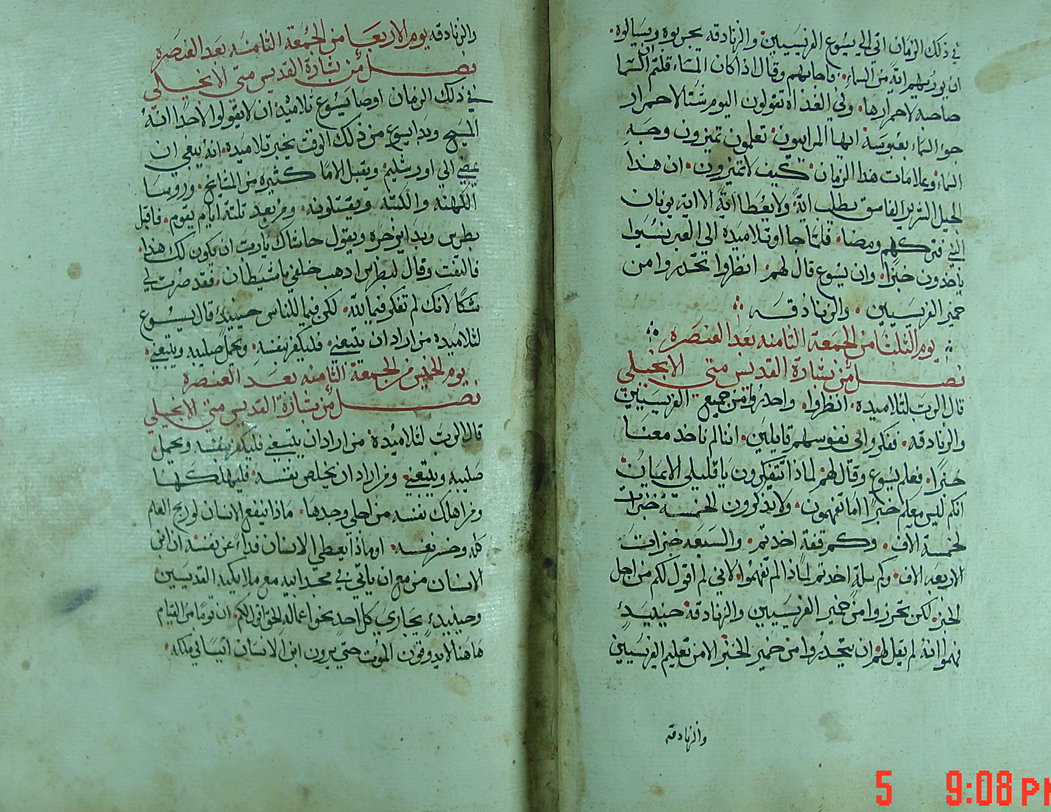 في ذلك الزمان اتى الى يسوع الفريسيين والزنادقه يجربوه ويسالوه
ان يوريهم اية من السماء فاجابهم وقال اذا كان المساء قلتم السما
صاحيه لاحمرارها وفي الغداه تقولون اليوم شتا لاحمرار
جو السماء بعبوسة ايها المرايون تعلمون تميزون وجه
السماء وعلامات هذا الزمان كيف لا تميزون ان هذا
الجيل الشرير الفاسق يطلب اية ولا يعطا اية الا اية يونان
النبي تركهم ومضا فلما جاوا تلاميذه الى العبر نسيوا
ياخدون خبزا وان يسوع قال لهم انظروا تحذروا من
خمير الفريسيين والزنادقه
يوم التلتا من الجمعة التامنه بعد العنصره
فصل من بشارة القديس متى الانجيلي
قال الرب لتلاميذه انظروا واحذروا من جميع الفريسيين
والزنادقه ففكروا في نفوسهم قايلين اننا لم ناخد معنا
خبزا فعلم يسوع وقال لهم لماذا تتفكرون يا قليلي الايمان
انكم ليس معكم خبزا اما تفهمون ولا تذكرون الخمسة خبزات
لخمسة الاف وكم قفة اخدتم والسبعه خبزات
الاربعه الاف وكم سلة اخدتم لماذا لم تفهموا لاني لم اقول لكم من اجل
الخبز لكن تحرزوا من خمير الفريسيين والزنادقه حينيدٍ
فهموا انه لم يقل لهم ان يحذروا من خمير الخبز الا من تعليم الفريسيين
والزنادقه
والزنادقه يوم الاربعا من الجمعة التامنه بعد العنصره
فصل من بشارة القديس متى الانجيلي
في ذلك الزمان اوصا يسوع تلاميذه ان لا يقولوا لاحد انه
المسيح وبدا يسوع من ذلك الوقت يخبر تلاميذه انه ينبغي ان
يمضي الى اورشليم ويقبل الاما كثيره من المشايخ وروسا
الكهنه والكتبه ويقتلونه ومن بعد تلتة ايام يقوم فاقبل
بطرس وبدا يزجره ويقول حاشاك يا رب ان يكون لك هذا
فالتفت وقال لبطرس ادهب خلفي يا شيطان فقد صرت لي
شكا لانك لم تفكر فيما لله لكن فيما للناس حينيدٍ قال يسوع
لتلاميذه من اراد ان يتبعني فليكفر بنفسه ويحمل صليبه ويتبعني
يوم الخميس من الجمعة التامنه بعد العنصره
فصل من بشارة القديس متى الانجيلي
قال الرب لتلاميذه من اراد ان يتبعني فليكفر بنفسه ويحمل
صليبه ويتبعني ومن اراد ان يخلص نفسه فليهلكها
ومن اهلك نفسه من اجلي وجدها ماذا ينفع الانسان لو ربح العالم
كله وخسر نفسه او ماذا يعطي الانسان فداء عن نفسه ان ابن
الانسان مزمع ان ياتي في مجد ابيه مع ملايكته القديسين
وحينيدٍ يجازي كل احد بنحو اعماله الحق اقول لكم ان قوما من القيام
هاهنا لا يدوقون الموت حتى يرون ابن الانسان اتيا في ملكه
5 9:08 PM